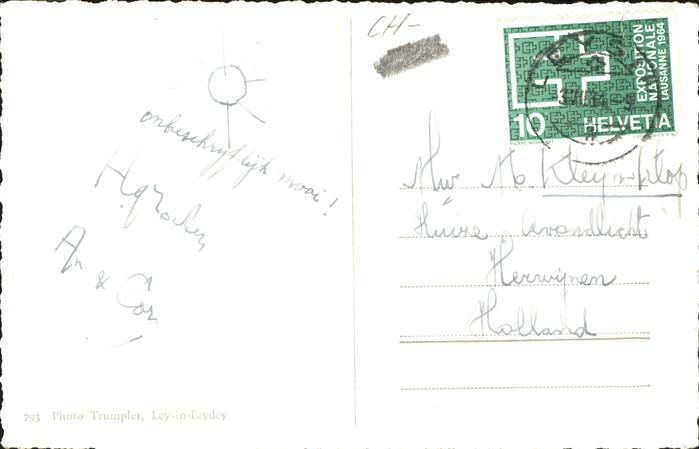 CH-
onbeschrijflijk mooi!
H. groeten
An & Cor
793 Photo Trumpler, Leysin-Feydey
EXPOSITION
NATIONALE
LAUSANNE 1964
10 HELVETIA
Mw M. Kleyn-Klop
Huize Avondlicht
Herwijnen
Holland